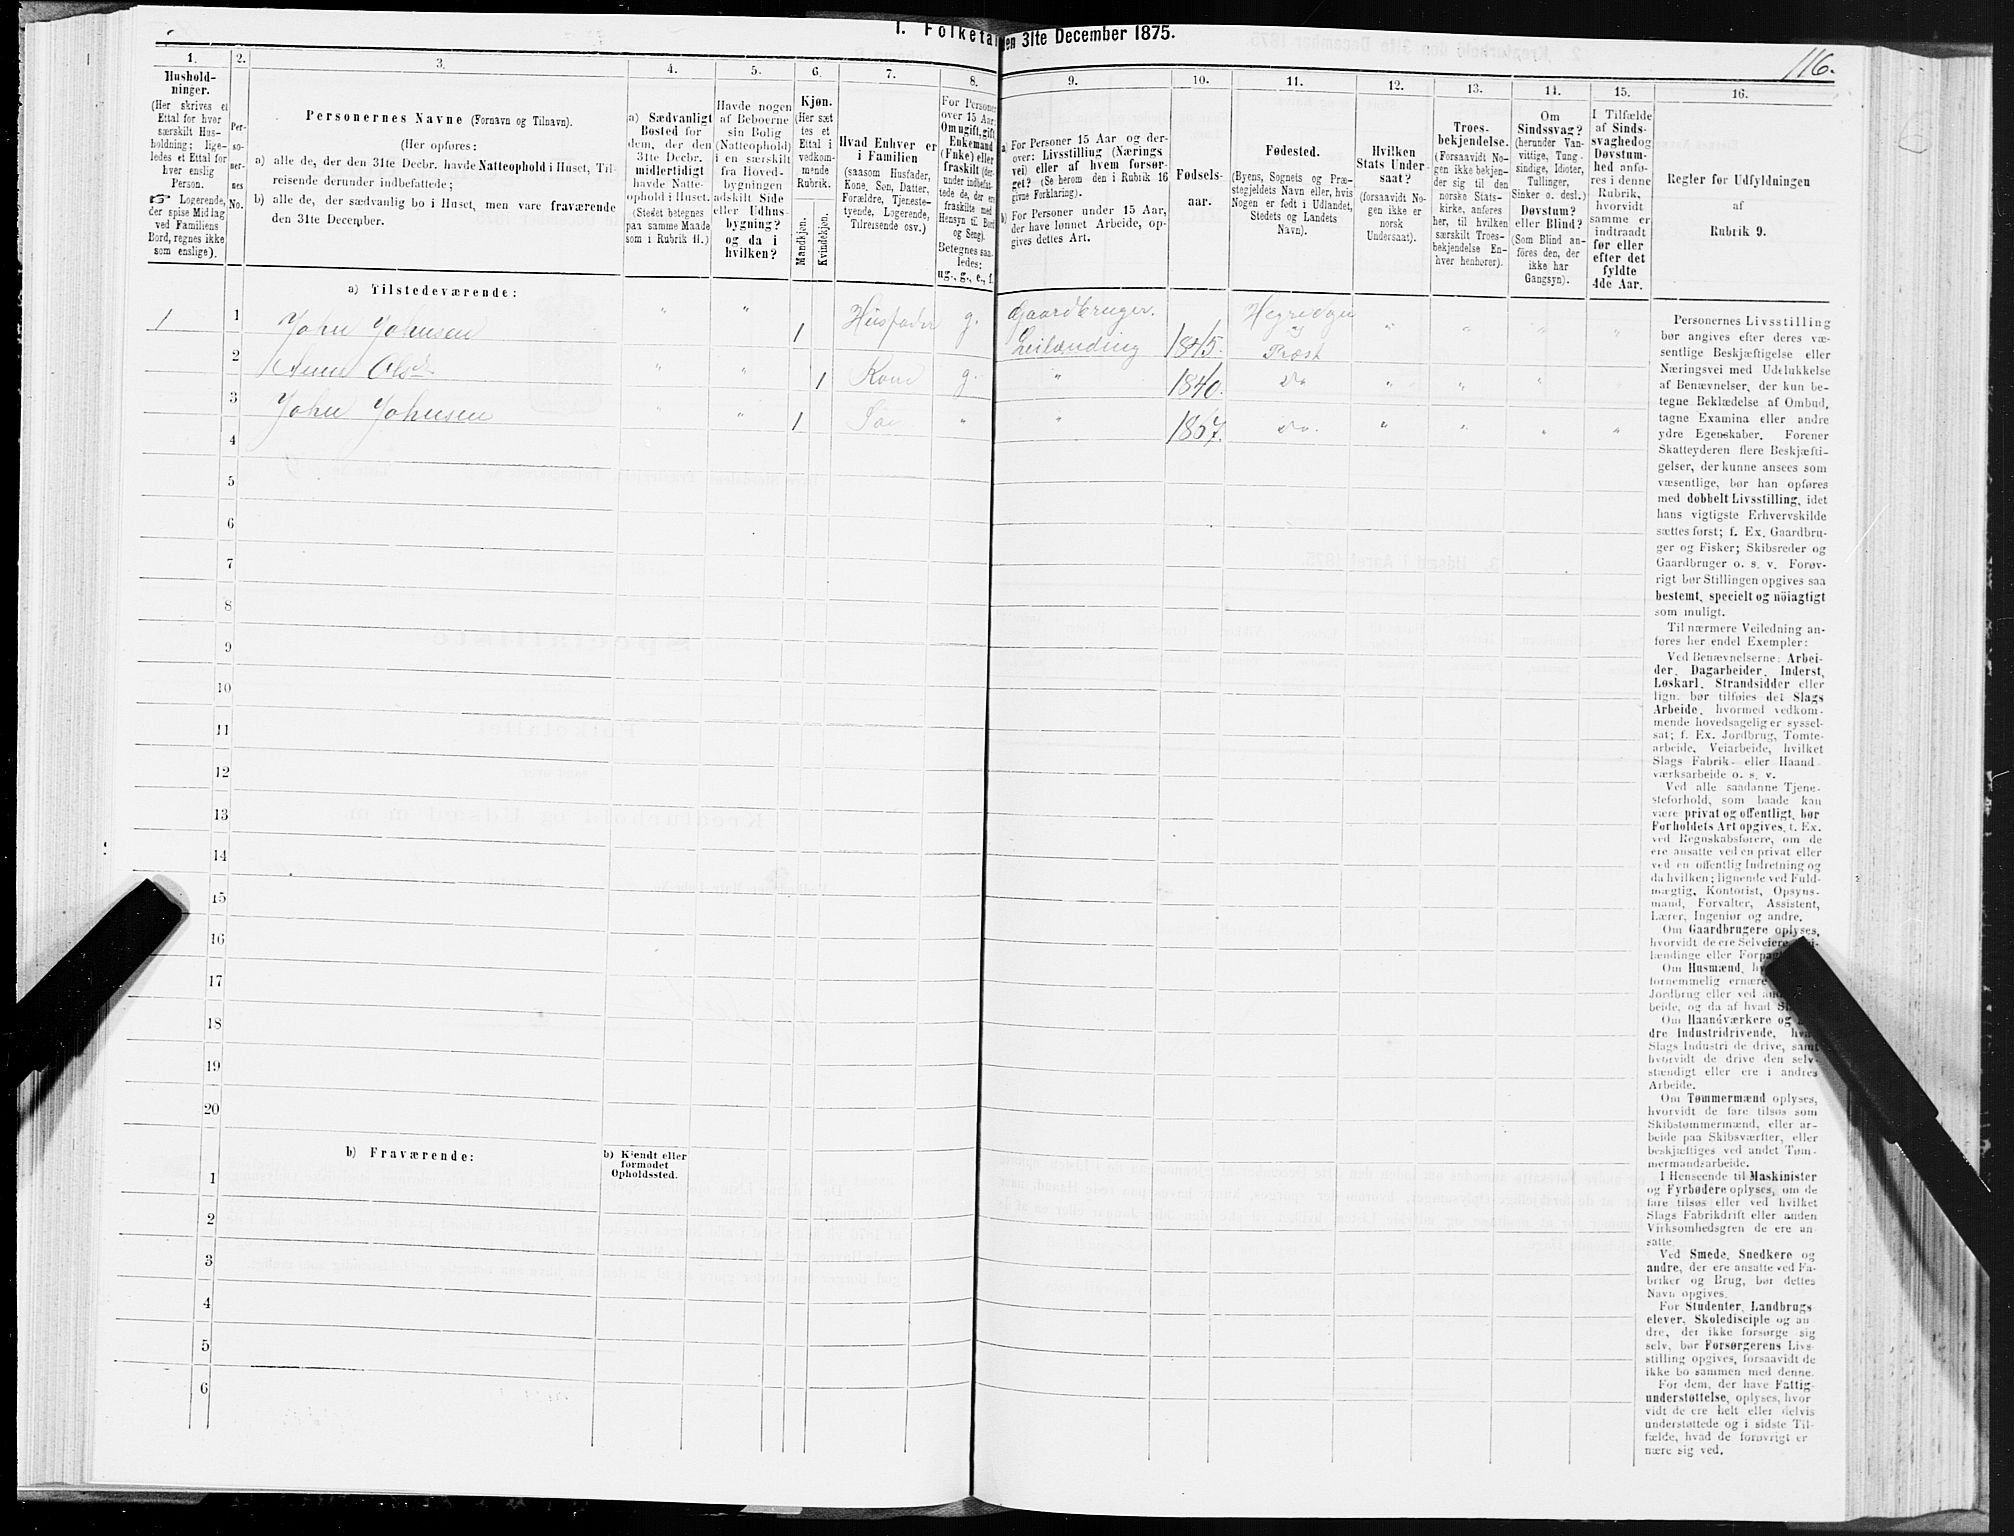 1. Folketal den 31te December 1875.
116.
1.
Hushold-
ninger.
(Her skrives et
Ettal for hver
særskilt Hus-
holdning; lige-
ledes et Ettal for
hver enslig
Person.
☞ Logerende,
der spise Middag
ved Familiens
Bord, regnes ikke
som enslige).
2.
Per-
so-
ner-
nes
No.
3.
Personernes Navne (Fornavn og Tilnavn).
(Her opføres:
a) alle de, der den 31te Decbr. havde Natteophold i Huset, Til-
reisende derunder indbefattede;
b) alle de, der sædvanlig bo i Huset, men vare fraværende
den 31te December.
4.
a) Sædvanligt
Bosted for
dem, der den
31te Decbr.
midlertidigt
havde Natte-
ophold i Huset.
(Stedet betegnes
paa samme Maade
som i Rubrik 11.)
5.
Havde nogen
af Beboerne
sin Bolig
(Natteophold)
i en særskilt
fra Hoved-
bygningen
adskilt Side
eller Udhus-
bygning?
og da i
hvilken?
6.
Kjøn.
(Her sæt
tes et
Ettal i
vedkom-
mende
Rubrik.
Mandkjøn.
Kvindekjøn.
7.
Hvad Enhver er
i Familien
(saasom Husfader,
Kone, Søn, Datter,
Forældre, Tjeneste-
tyende, Logerende,
Tilreisende osv.)
8.
For Personer
over 15 Aar:
Om ugift, gift,
Enkemand
(Enke) eller
fraskilt (der-
under indbefat-
tede de, der ere
fraskilte med
Hensyn til Bord
og Seng).
Betegnes saa-
ledes:
ug., g., e., f.
9.
a) For Personer 15 Aar og der-
over: Livsstilling (Nærings
vei) eller af hvem forsør-
get? (Se herom den i Rubrik 16
givne Forklaring).
b) For Personer under 15 Aar,
der have lønnet Arbeide, op-
gives dettes Art.
10.
Fødsels-
aar.
11.
Fødested.
(Byens, Sognets og Præ-
stegjeldets Navn eller, hvis
Nogen er født i Udlandet,
Stedets og Landets
Navn).
12.
Hvilken
Stats Under-
saat?
(forsaavidt No-
gen ikke er
norsk
Undersaat).
13.
Troes-
bekjendelse.
(Forsaavidt No-
gen ikke bekjen-
der sig til den
norske Stats-
kirke, anføres
her, til hvilken
særskilt Troes-
bekjendelse En-
hver henhører).
14.
Om
Sindssvag?
(herunder Van-
vittige, Tung-
sindige, Idioter,
Tullinger,
Sinker o. desl.)
Døvstum?
eller Blind?
(Som Blind an-
føres den, der
ikke har
Gangsyn).
15.
I Tilfælde
af Sinds-
svaghedog
Døvstum-
hed anfø-
res i denne
Rubrik,
hvorvidt
samme er
indtraadt
før eller
efter det
fyldte
4de Aar.
16.
Regler før Udfyldningen
af
Rubrik 9.
a) Tilstedeværende:
1 1 John Johnsen " " 1 Husfader g. Gaardbruger. Leilænding 1845. Hegre Sogn og Præst " " " "
2 Anne Olsd. " " 1 Kone g. " 1840. Do " " "
3 John Johnsen " " 1 Søn " " 1867. Do. " " " "
4
5
6
7
8
9
10
11
12
13
14
15
16
17
18
19
20
b) Fraværende:
b) Kjendt eller
formodet
Opholdssted.
1
2
3
4
5
6
Personernes Livsstilling
bør angives efter deres væ-
sentlige Beskjæftigelse eller
Næringsvei med Udelukkelse
af Benævnelser, der kun be-
tegne Beklædelse af Ombud,
tagne Examina eller andre
ydre Egenskaber. Forener
Skatteyderen flere Beskjæfti-
gelser, der kunne ansees som
væsentlige, bør han opføres
med dobbelt Livsstilling, idet
hans vigtigste Erhvervskilde
sættes først; f. Ex. Gaardbru-
ger og Fisker; Skibsreder og
Gaardbruger o. s. v. Forøv-
rigt bør Stillingen opgives saa
bestemt, specielt og nöiagtigt
som muligt.
Til nærmere Veiledning an-
føres her endel Exempler:
Ved Benævnelserne: Arbei-
der, Dagarbeider, Inderst,
Løskarl, Strandsidder eller
lign. bør tilføies det Slags
Arbeide, hvormed vedkom-
mende hovedsagelig er syssel-
sat; f. Ex. Jordbrug, Tomte-
arbeide, Veiarbeide, hvilket
Slags Fabrik- eller Haand-
værksarbeide o. s. v.
Ved alle saadanne Tjene-
steforhold, som baade kan
være privat og offentligt, bør
Forholdets Art opgives, f. Ex.
ved Regnskabsførere, om de
ere ansatte ved en privat eller
ved en offentlig Indretning og
da hvilken; lignende ved Fuld-
mægtig, Kontorist, Opsyns-
mand, Forvalter, Assistent,
Lærer, Ingeniør og andre.
Om Gaardbrugere oplyses,
hvorvidt de ere Selveiere,
lændinge eller
Om Husmænd,
fornemmelig ernære
Jordbrug eller ved
beide, og da af hvad
Om Haandværkere og
dre Industridrivende,
Slags Industri de drive, samt
hvorvidt de drive den selv-
stændigt eller ere i andres
Arbeide.
Om Tømmermænd oplyses,
hvorvidt de fare tilsøs som
Skibstømmermænd, eller ar-
beide paa Skibsværfter, eller
beskjæftiges ved andet Tøm-
mermandsarbeide.
I Henseende til Maskinister
og Fyrbødere oplyses, om de
fare tilsøs eller ved hvilket
Slags Fabrikdrift eller anden
Virksomhedsgren de ere an-
satte.
Ved Smede, Snedkere og
andre, der ere ansatte ved Fa-
briker og Brug, bør dettes
Navn opgives.
For Studenter, Landbrugs-
elever, Skoledisciple og an-
dre, der ikke forsørge sig
selv, bør Forsørgerens Livs-
stilling opgives, forsaavidt de
ikke bo sammen med denne.
For dem, der have Fattig-
understøttelse, oplyses, hvor
vidt de ere helt eller delvis
understøttede og i sidste Til-
fælde, hvad de forøvrigt er
nære sig ved.